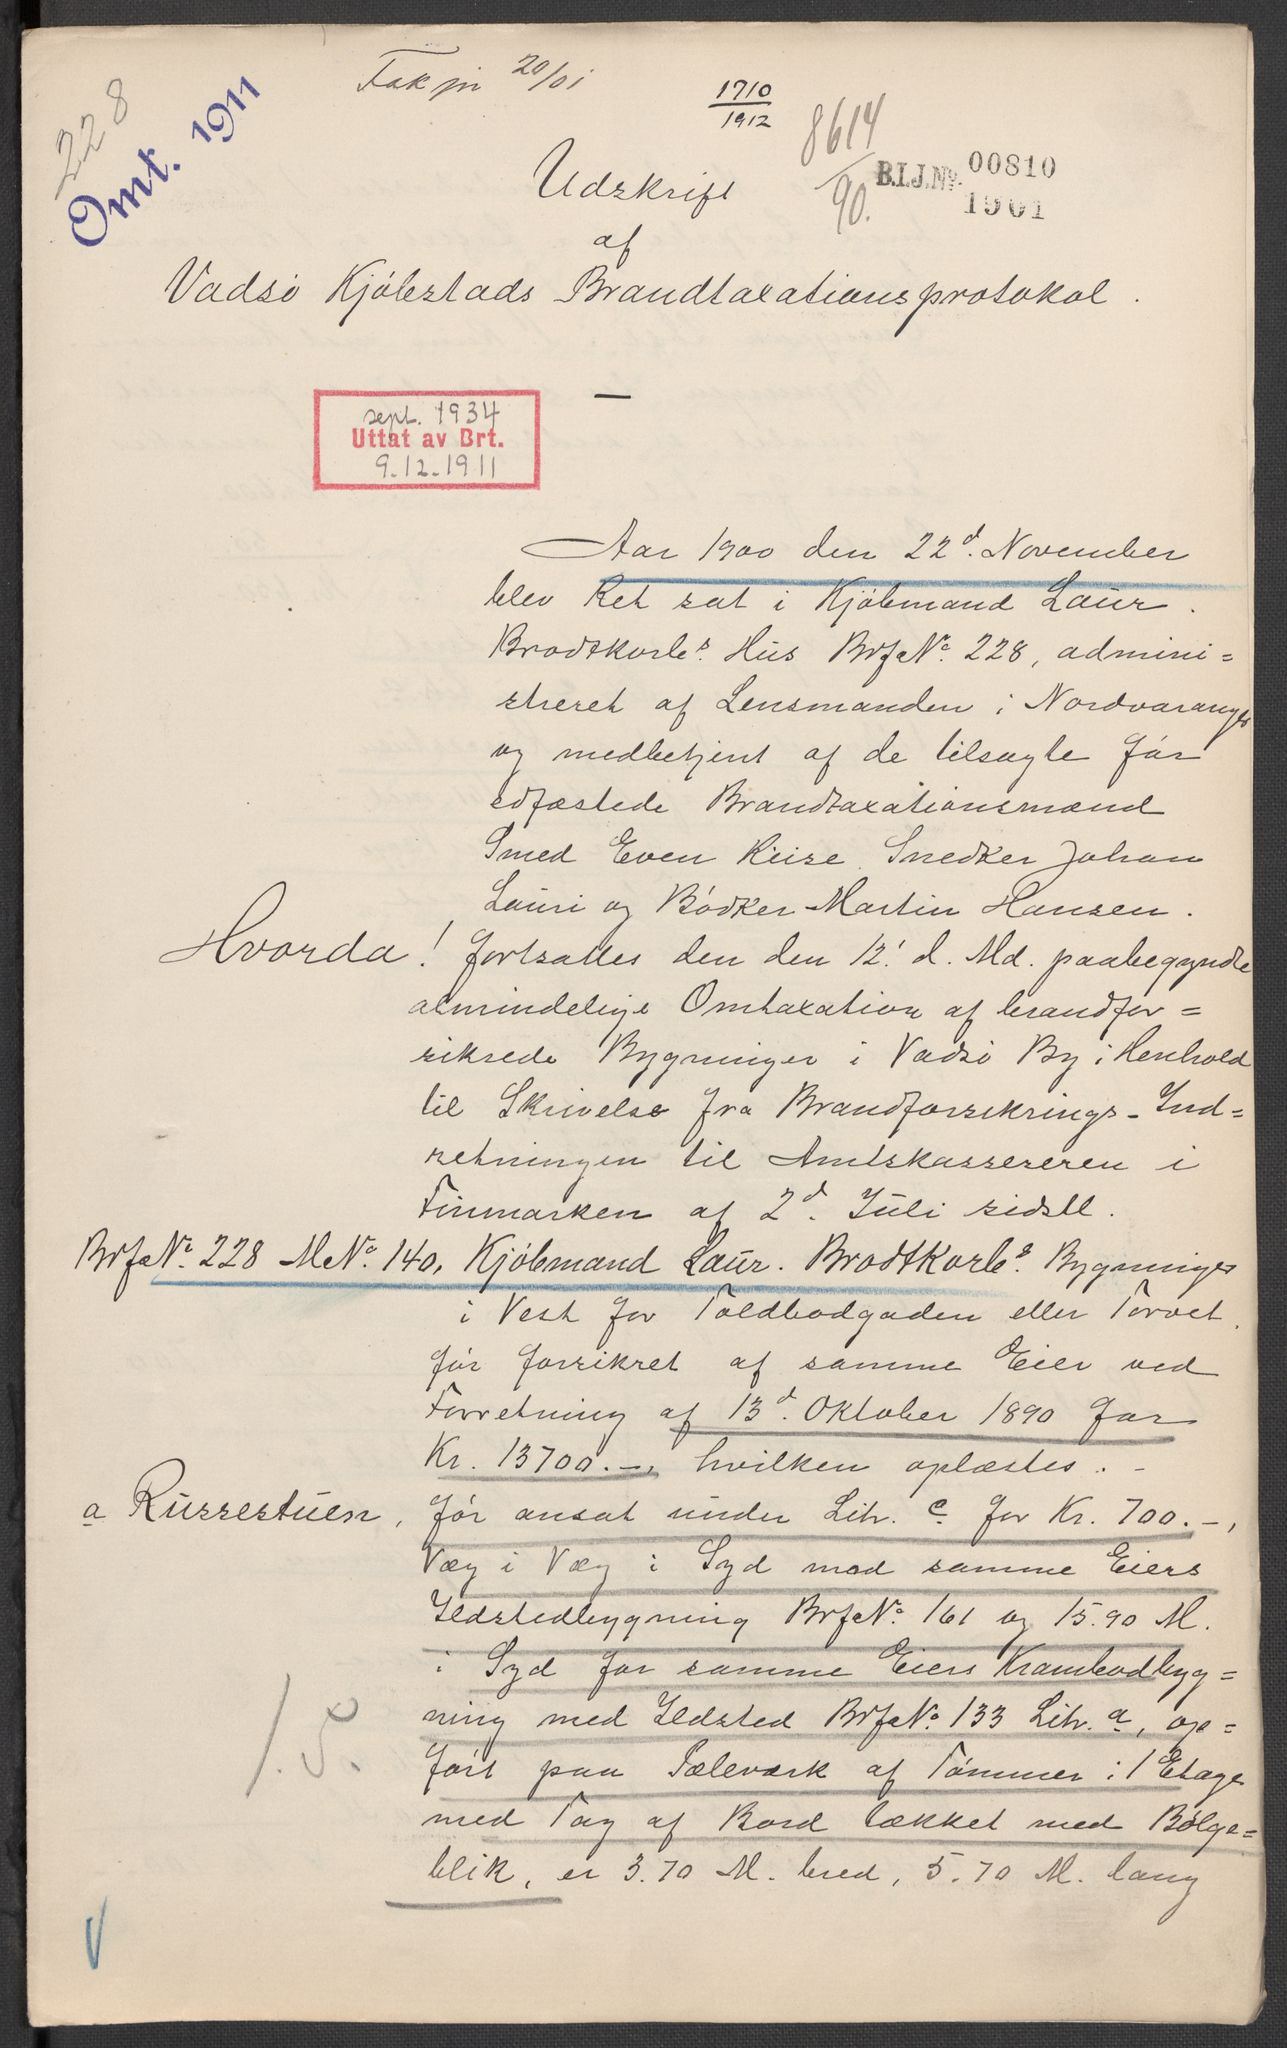 228
Omt. 1911
20/01
1710
1912
8614
/90.
B.I.J.No. 00810
1901
Udskrift
af
Vadsö Kjöbstads Brandtaxationsprotokol.
sept. 1934
Uttat av Brt.
9.12.1911
Aar 1900 den 22d. November
blev Ret sat i Kjöbmand Laur.
Brodtkorbs Hus BrfNo. 228, admini=
streret af Lensmanden i Nordvaranger
og medbetjent af de tilsagte för
edfæstede Brandtaxationsmænd
Smed Even Riise, Snedker Johan
Lauri og Bödker Martin Hansen.
Hvorda! fortsattes den den 12' d. Md. paabegyndte
almindelige Omtaxation af brandfor=
sikrede Bygninger i Vadsö By i Henhold
til Skrivelse fra Brandforsikrings-Ind=
retningen til Amtskassereren i
Finmarken af 2d. Juli sidstl.
BrfNo. 228 MNo. 140, Kjöbmand Laur. Brodtkorbs Bygninger
i Vest for Toldbodgaden eller Torvet,
för forsikret af samme Eier ved
Forretning af 13d. Oktober 1890 for
Kr. 13700.-, hvilken oplæstes. -
a Russestuen, för ansat under Litr. c for Kr. 700.-,
Væg i Væg i Syd med samme Eiers
Ildstedbygning BrfNo. 161 og 15.90 M.
i Syd for samme Eiers Krambodbyg=
ning med Ildsted BrfNo. 133 Litr. a, op=
fört paa Pæleværk af Tömmer i 1 Etage
med Tag af Bord tækket med Bölge=
blik, er 3.70 M. bred, 5.70 M. lang
1.5.